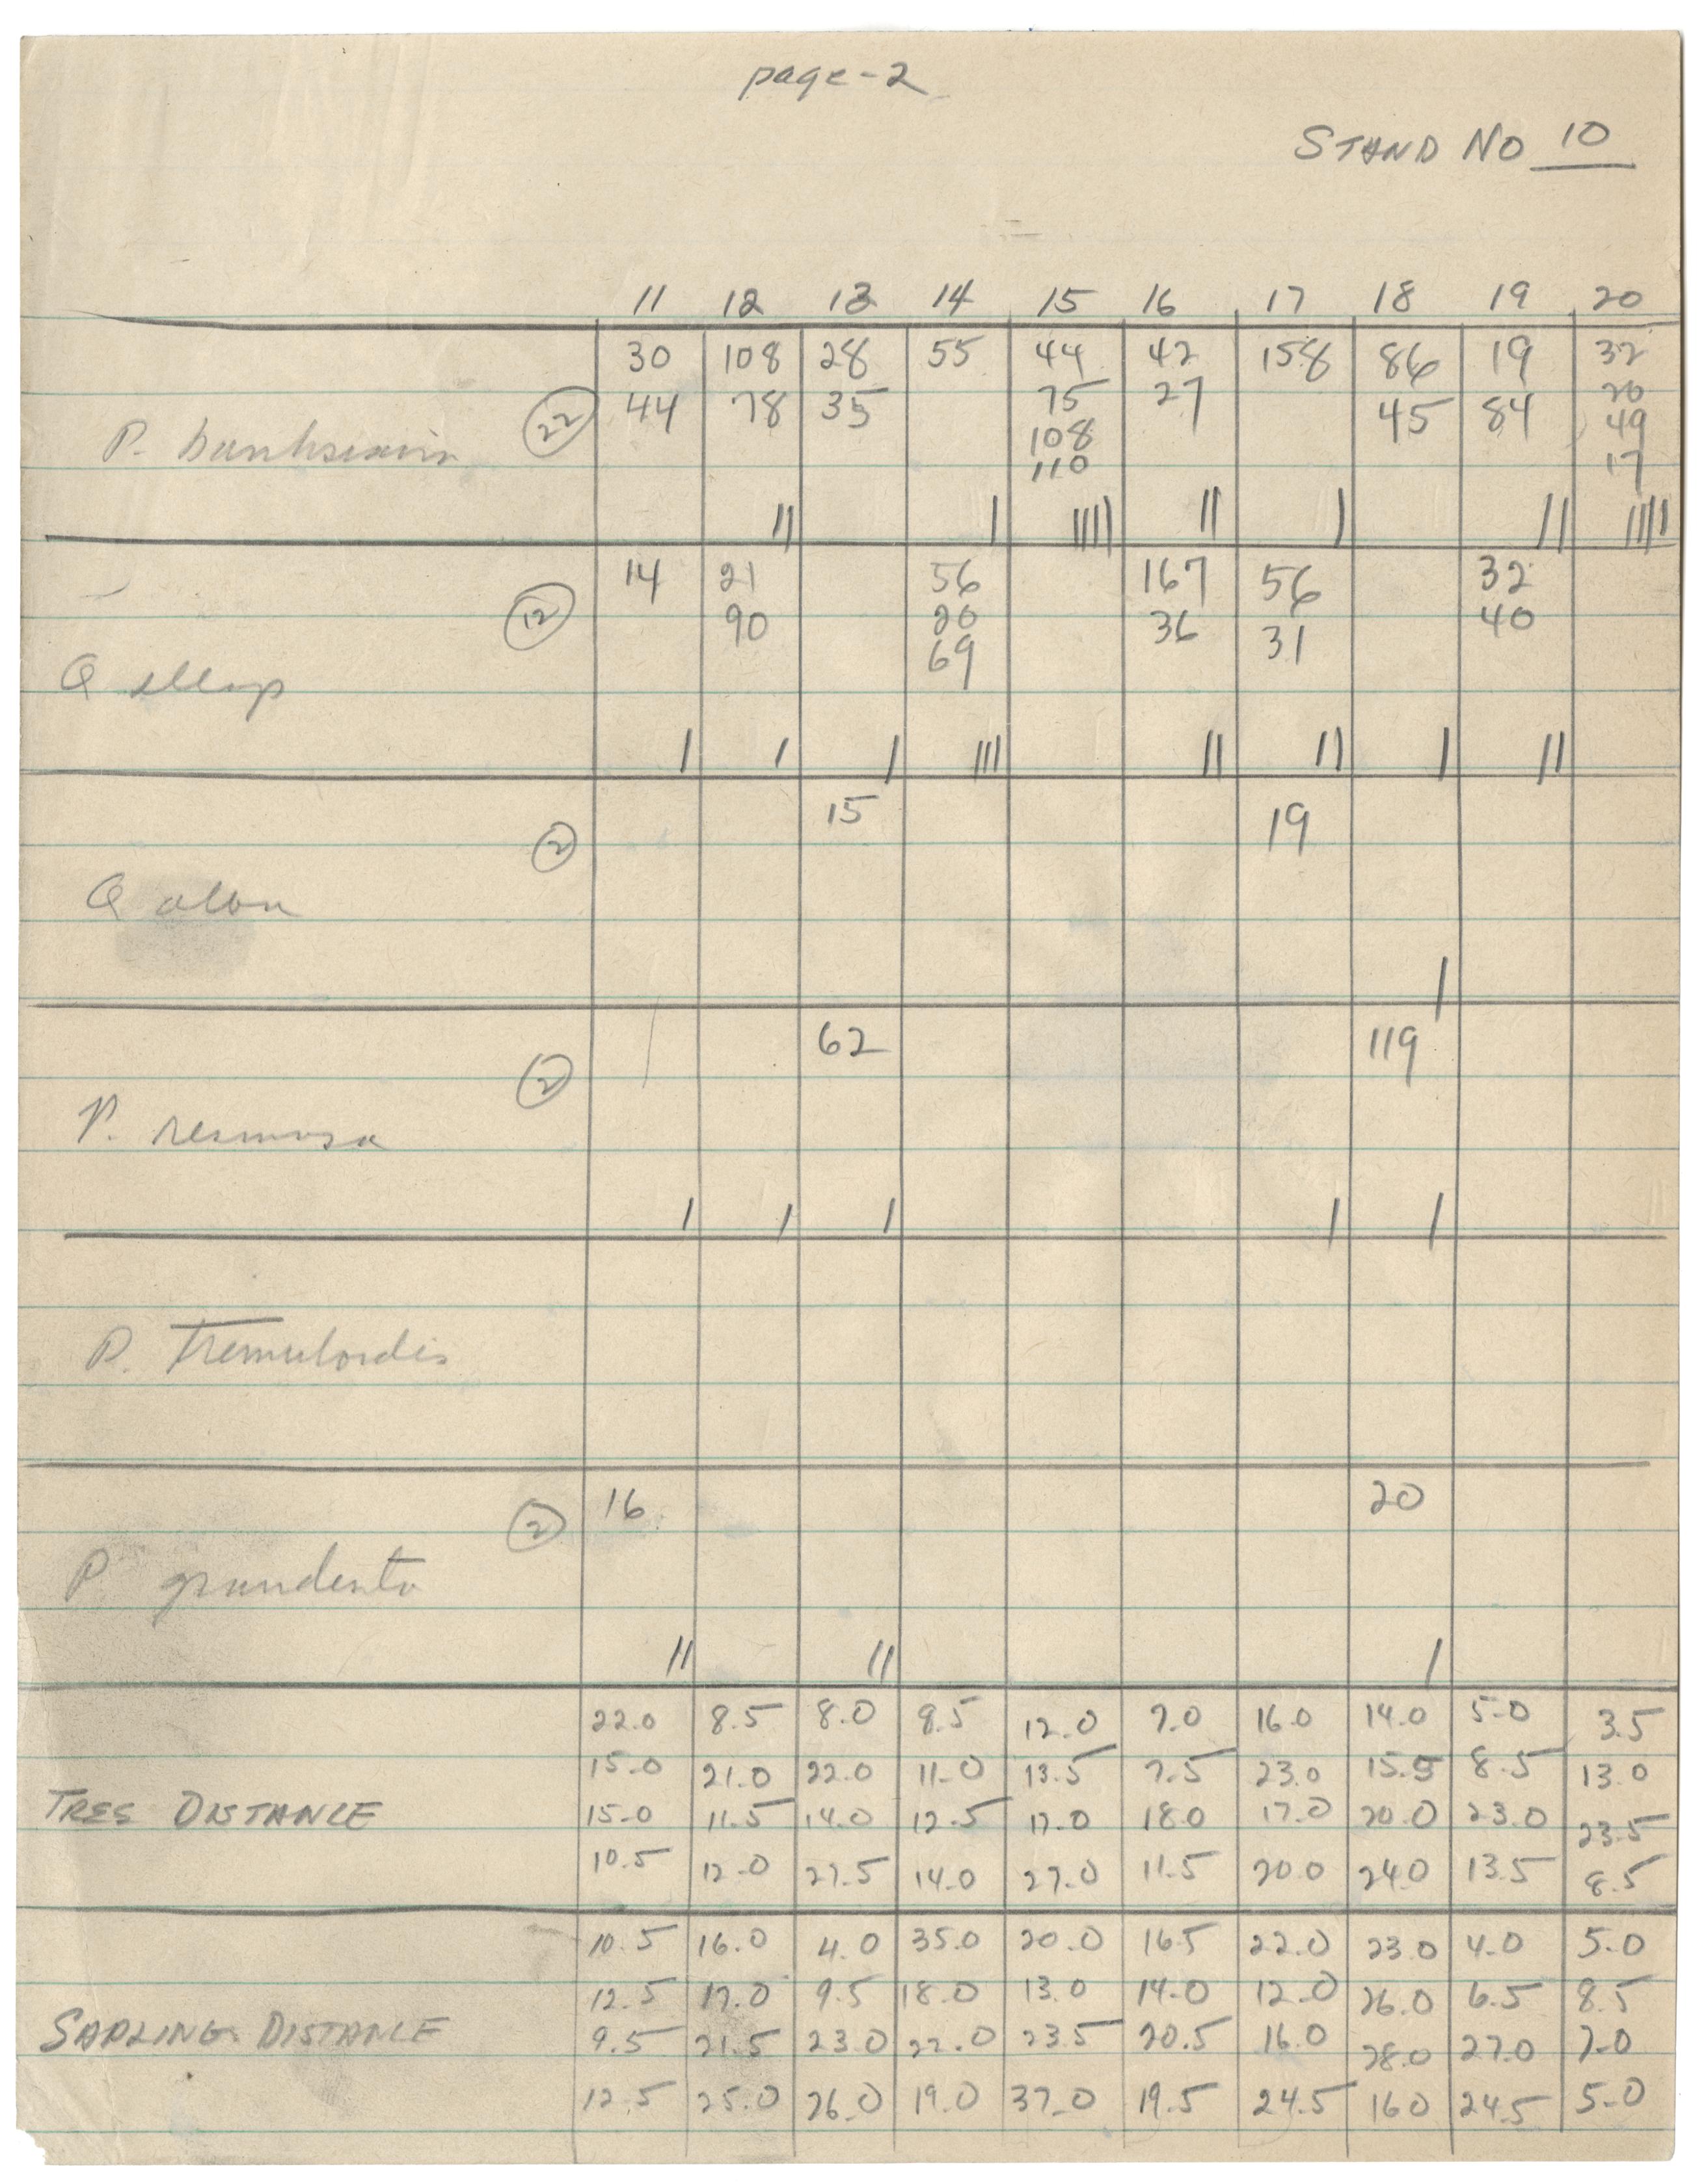 page-2
STAND NO 10
11 12 13 14 15 16 17 18 19 20
30 108 28 55 44 42 158 86 19 32
44 78 35 75 27 45 84 20
P. banksiana 22 108 49
110 17
|| | |||| || | || ||||
14 21 56 167 56 32
12 90 20 36 31 40
69
Q ellip
| | | |||| || || | ||
15 19
2
Q alba
|
62 119
2
P. resinosa
| | | | |
P. Tremuloides
16 20
2
P grandenta
|| || |
22.0 8.5 8.0 9.5 12.0 7.0 16.0 14.0 5.0 3.5
15.0 21.0 22.0 11.0 13.5 7.5 23.0 15.5 8.5 13.0
TREE DISTANCE 15.0 11.5 14.0 12.5 17.0 18.0 17.0 20.0 23.0 23.5
10.5 12.0 27.5 14.0 27.0 11.5 20.0 24.0 13.5 8.5
10.5 16.0 4.0 35.0 20.0 16.5 22.0 23.0 4.0 5.0
12.5 17.0 9.5 18.0 13.0 14.0 12.0 26.0 6.5 8.5
SAPLING DISTANCE 9.5 21.5 23.0 22.0 23.5 20.5 16.0 28.0 27.0 7.0
12.5 25.0 26.0 19.0 37.0 19.5 24.5 16.0 24.5 5.0